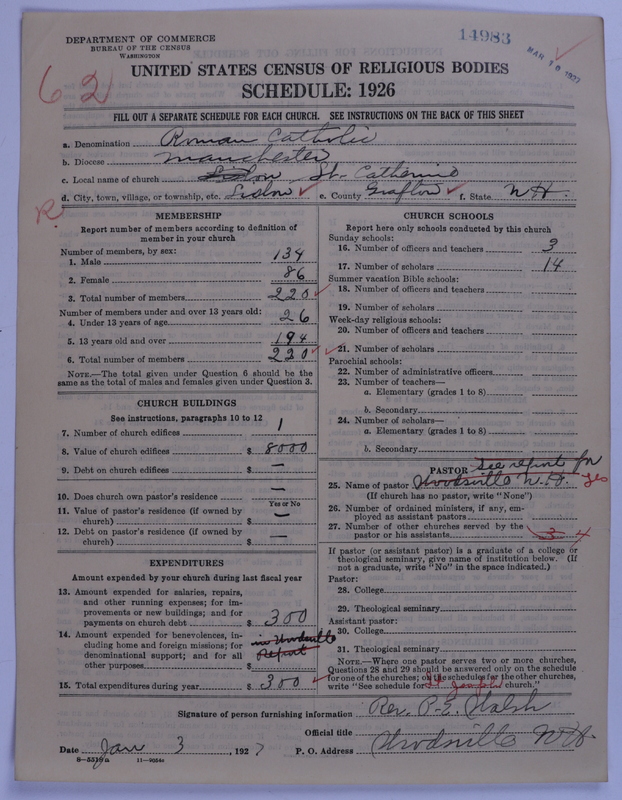 DEPARTMENT OF COMMERCE
BUREAU OF THE CENSUS
WASHINGTON
14983
MAR 10 1927
62
UNITED STATES CENSUS OF RELIGIOUS BODIES
SCHEDULE: 1926
FILL OUT A SEPARATE SCHEDULE FOR EACH CHURCH. SEE INSTRUCTIONS ON THE BACK OF THIS SHEET
a. Denomination Roman Catholic
b. Diocese Manchester
c. Local name of church St. Catherine
d. City, town, village, or township, etc. Lisbon ✓ e. County Grafton ✓ f. State N.H.
R
MEMBERSHIP
Report number of members according to definition of
member in your church
Number of members, by sex:
1. Male 134
2. Female 86
3. Total number of members 220 ✓
Number of members under and over 13 years old:
4. Under 13 years of age 26
5. 13 years old and over 194
6. Total number of members 220 ✓
NOTE.—The total given under Question 6 should be the
same as the total of males and females given under Question 3.
CHURCH BUILDINGS
See instructions, paragraphs 10 to 12
7. Number of church edifices 1
8. Value of church edifices $ 8000
9. Debt on church edifices $ —
10. Does church own pastor's residence —
Yes or No
11. Value of pastor's residence (if owned by
church) $ —
12. Debt on pastor's residence (if owned by
church) $ —
EXPENDITURES
Amount expended by your church during last fiscal year
13. Amount expended for salaries, repairs,
and other running expenses; for im-
provements or new buildings; and for
payments on church debt $ 300
14. Amount expended for benevolences, in-
cluding home and foreign missions; for
denominational support; and for all
other purposes $ in Woodsville Report
15. Total expenditures during year $ 300 ✓
CHURCH SCHOOLS
Report here only schools conducted by this church
Sunday schools:
16. Number of officers and teachers 3
17. Number of scholars 14
Summer vacation Bible schools:
18. Number of officers and teachers
19. Number of scholars
Week-day religious schools:
20. Number of officers and teachers
21. Number of scholars
Parochial schools:
22. Number of administrative officers
23. Number of teachers—
a. Elementary (grades 1 to 8)
b. Secondary
24. Number of scholars—
a. Elementary (grades 1 to 8)
b. Secondary
PASTOR See report for
25. Name of pastor Woodsville N.H. yes
(If church has no pastor, write "None")
26. Number of ordained ministers, if any, em-
ployed as assistant pastors
27. Number of other churches served by the
pastor or his assistants 3 4
If pastor (or assistant pastor) is a graduate of a college or
theological seminary, give name of institution below. (If
not a graduate, write "No" in the space indicated.)
Pastor:
28. College
29. Theological seminary
Assistant pastor:
30. College
31. Theological seminary
NOTE.—Where one pastor serves two or more churches,
Questions 28 and 29 should be answered only on the schedule
for one of the churches; on the schedules for the other churches,
write "See schedule for St Joseph church."
Signature of person furnishing information Rev. P.E. Walsh
Official title
Date Jan 3, 1927 P. O. Address Woodsville N.H.
8—5519a 11—9054c